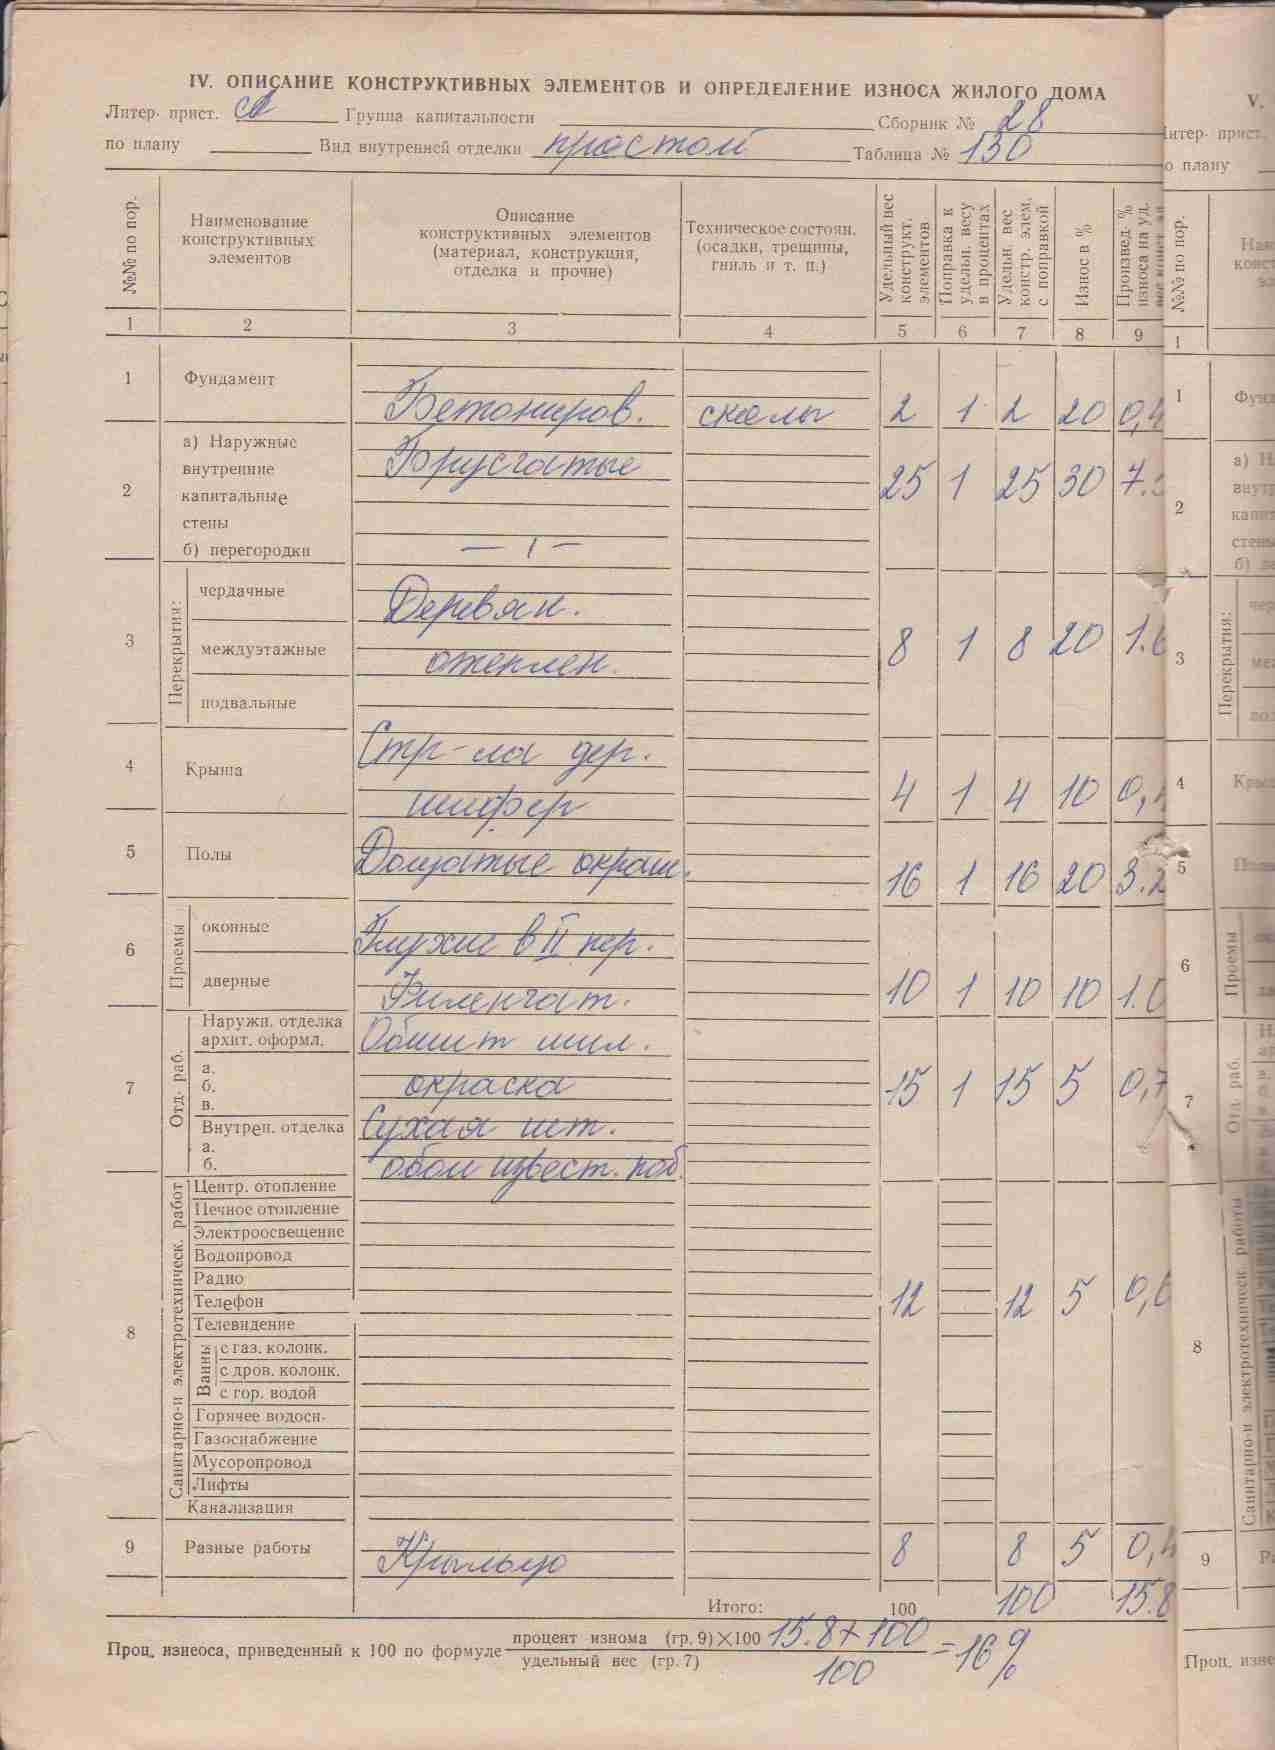 IV. ОПИСАНИЕ КОНСТРУКТИВНЫХ ЭЛЕМЕНТОВ И ОПРЕДЕЛЕНИЕ ИЗНОСА ЖИЛОГО ДОМА
Литер- прист. Группа капитальности Сборник № 28
по плану Вид внутренней отделки простой Таблица № 130
№№ по пор. Наименование конструктивных элементов Описание конструктивных элементов (материал, конструкция, отделка и прочие) Техническое состоян. (осадки, трещины, гниль и т. п.) Удельный вес конструкт. элементов Поправка к удельн. весу в процентах Удельн. вес констр. элем. с поправкой Износ в % Произвед. % износа на уд.
1 2 3 4 5 6 7 8 9
1 Фундамент Бетониров. скалы 2 1 2 20 0,4
2 а) Наружные внутренние капитальные стены Брусчатые 25 1 25 30 7.
б) перегородки — ı —
3 Перекрытия: чердачные Деревян.
междуэтажные отеплен. 8 1 8 20 1.6
подвальные
4 Крыша Стр-ла дер.
шифер 4 1 4 10 0,4
5 Полы Дощатые окраш. 16 1 16 20 3.2
6 Проемы оконные Глухие в II пер.
дверные Филенчат. 10 1 10 10 1.0
7 Отд. раб. Наружн. отделка архит. оформл. Обшит шил.
а. б. в. окраска 15 1 15 5 0,7
Внутрен. отделка Сухая шт.
а. б. обои извест. поб.
8 Санитарно-и электротехническ. работ
Центр. отопление
Печное отопление
Электроосвещение
Водопровод
Радио
Телефон 12 12 5 0,6
Телевидение
Ванны с газ. колонк.
с дров. колонк.
с гор. водой
Горячее водосн-
Газоснабжение
Мусоропровод
Лифты
Канализация
9 Разные работы Крыльцо 8 8 5 0,4
Итого: 100 100 15.8
Проц. изнеоса, приведенный к 100 по формуле процент изнома (гр. 9)×100 15.8×100
удельный вес (гр. 7) 100 = 16%
V.
Литер- прист.
по плану
№№ по пор.
1
1 Фунд
2 а) Н
внутр
капит
стены
б)
3 Перекрытия:
4
5
6 Проемы
7 Отд. раб.
8 Санитарно-и электротехническ. работы
9
Проц. изне